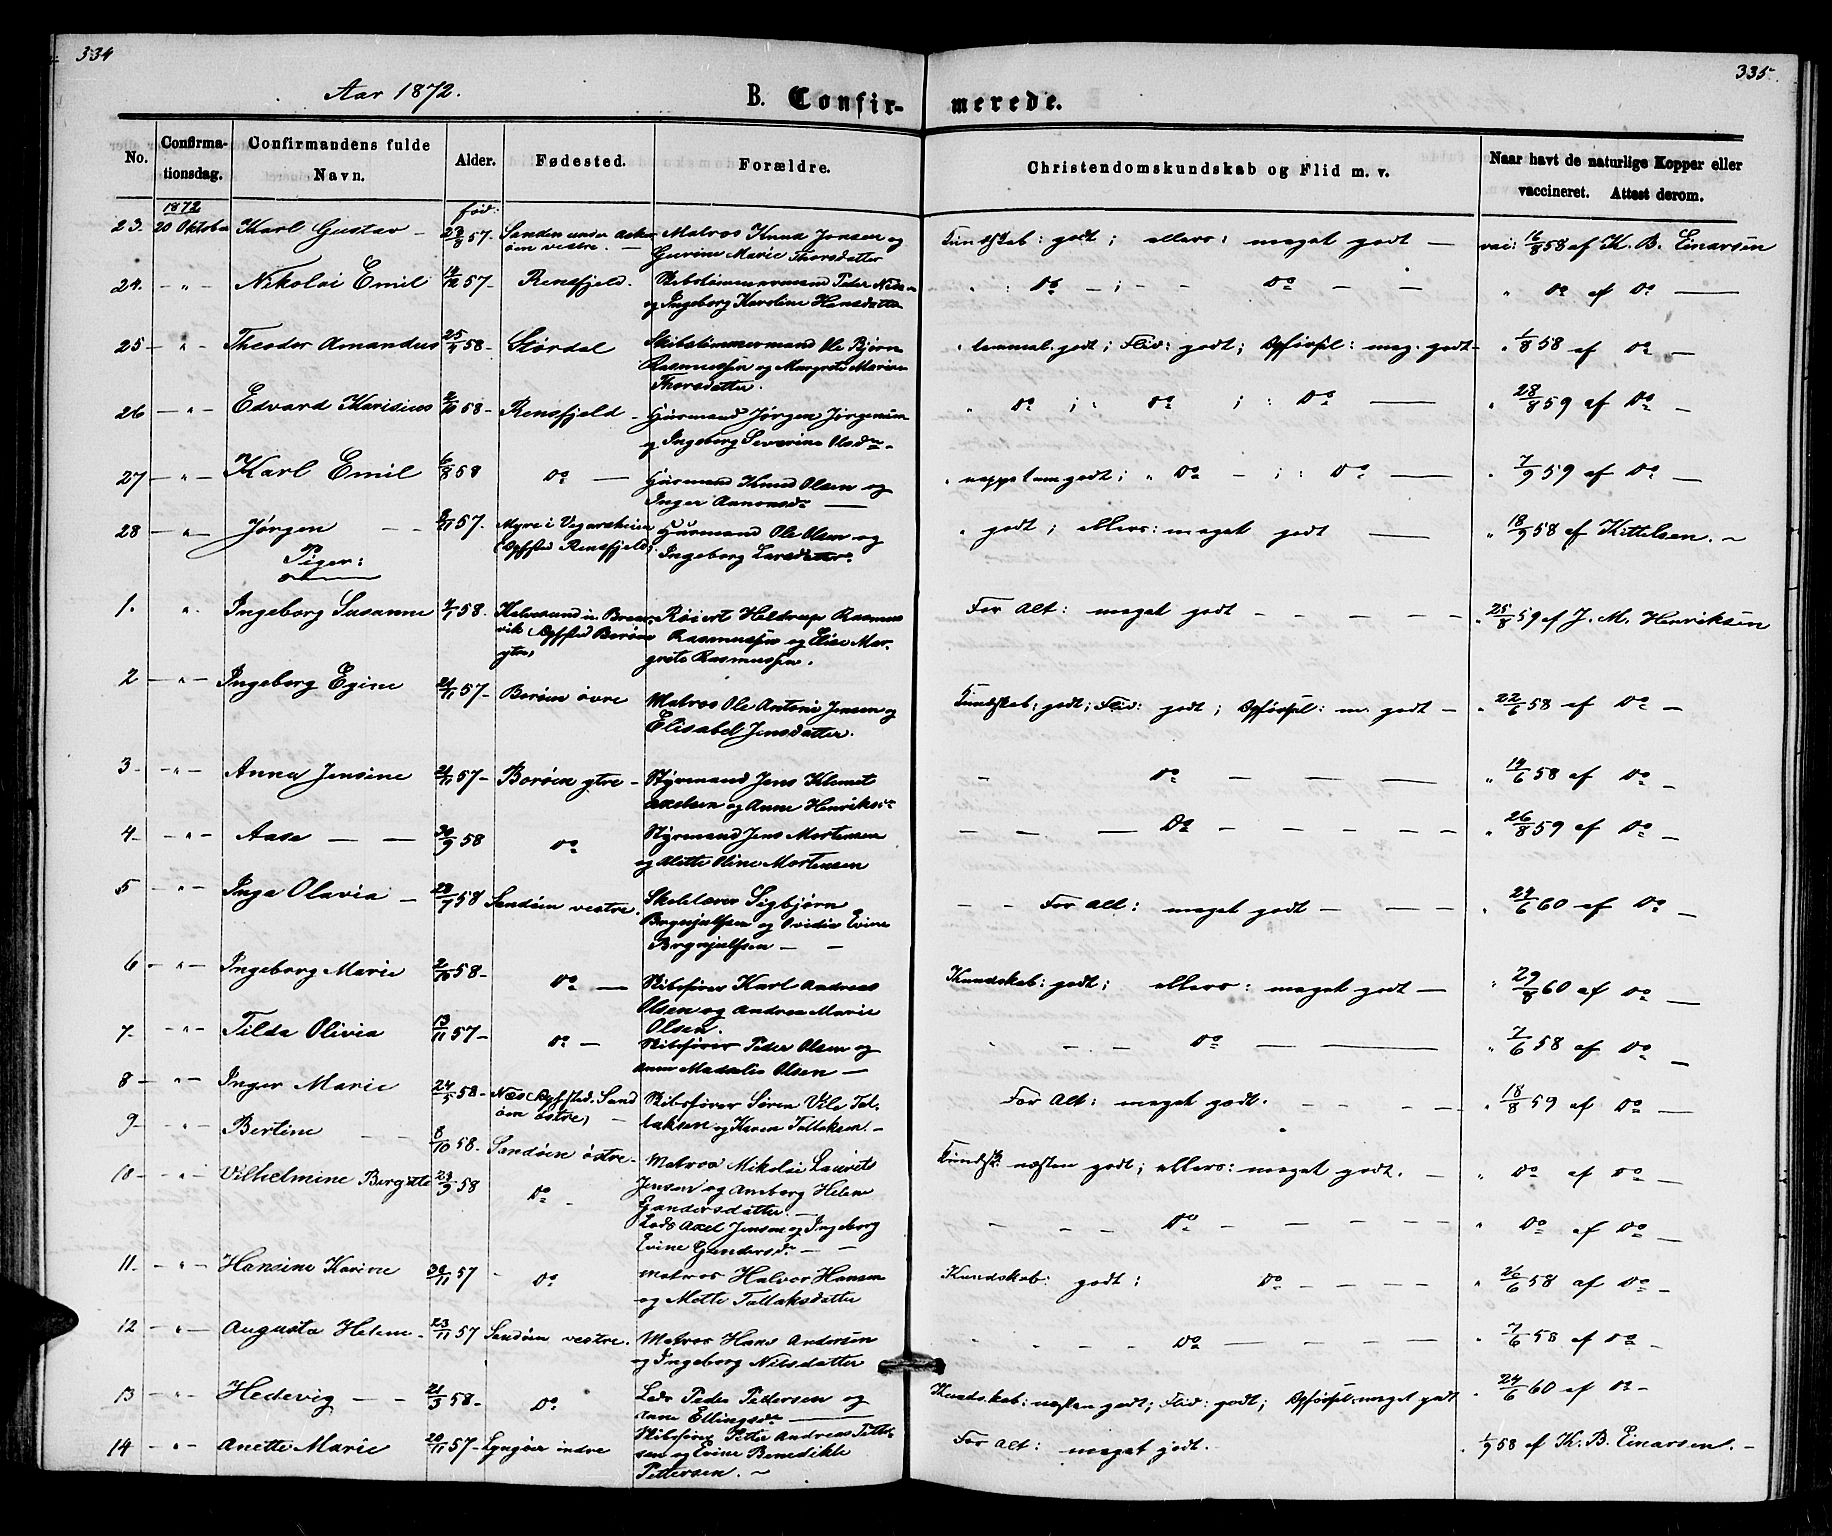 334
335
Aar 1872.
B. Confirmerede.
No. Confirmationsdag. Confirmandens fulde Navn. Alder. Fødested. Forældre. Christendomskundskab og Flid m. v. Naar havt de naturlige Kopper eller vaccineret. Attest derom.
1872 fød:
23. 20 Oktober Karl Gustav – 57. Sandøen under Asker-
øen vestre. – Matros Knud Jensen og
Gurine Marie Thorsdatter Kundskab: godt; ellers: meget godt – vac: 16/8 58 af K. B. Einarsen
24. – " – Nikolai Emil 14/12 57 – Rensfjeld. Skibstømmermand Peder
og Ingeborg Karoline Hansdatter " : Do – ; – – Do – – " Do af Do –
25 – " – Theodor Amandus 25/4 58 – Størdal Skibstimmermand Ole Bjørn
Rasmussen og Margrete Marie
Thorsdatter. " temmel. godt; Flid: godt; Opførsel: meg. godt – " 1/8 58 af Do –
26 – " – Edvard 2/10 58 – Rensfjeld – Huusmand Jørgen Jørgensen
og Ingeborg Severine Olsdr – " Do ; : Do ; : Do – " 28/8 59 af Do –
27 – " – Karl Emil 6/8 58 Do – Huusmand Knud Olsen og
Inger Aanonsdr – " neppe tem. godt; " Do – ; : Do – " 7/9 59 af Do –
28 – " – Jørgen – – 57. Myre i Vegarsheien
(Opfsted Rensfjeld) Huusmand Ole Olsen og
Ingeborg Larsdatter. " godt; ellers: meget godt – " 18/9 58 af Kittelsen. ~
Piger:
1. " Ingeborg Susanne 58. Kalvesund u. Bræk-
vik (Opfsted Borøen
ytre) Heldrup Rasmus
Rasmussen og Elise Mar-
grete Rasmussen. For Alt: meget godt – – – – " 25/8 59 af J. M. Henriksen
2 – " – Ingeborg Egine 21/11 57 – Borøen øvre Matros Ole Antoni Jensen og
Elisabet Jensdatter. Kundskab: godt; Flid: godt; Opførsel: m. godt – " 22/6 58 af Do –
3 – " – Anna Jensine 21/11 57 – Borøen ytre – Styrmand Jens Klemet
Axelsen og Anne Henriksdr – Do – – – " 19/6 58 af Do –
4. – " – Aase – – 30/9 58 Do Styrmand Jens Mortensen
og Alette Oline Mortensen – – – Do – – – – " 26/8 59 af Do –
5 – " – Inga Olavia – 58 Sandøen vestre. Skolelærer Sigbjørn
Brynjulfsen og Ovidia Evine
Brynjulfsen – – – – For Alt: meget godt – – – " 24/6 60 af Do –
6 – " – Ingeborg Marie 2/10 58 – Do – Skibsfører Karl Andreas
Olsen og Andrea Marie
Olsen. Kundskab: godt; ellers: meget godt – " 29/8 60 af Do –
7. – " – Tilda Olivia 13/11 57 – Do – Skibsfører Peder Olsen og
Anne Madsalia Olsen – – – – Do – – " 7/6 58 af Do –
8 – " – Inger Marie 24/5 58 – Næs (Opfsted. Sand-
øen østre) – Skibsfører Søren Vile Tal-
laksen og Karen Tallaksen. – For Alt: meget godt. – – – " 18/8 59 af Do –
9 – " – Bertine – – 8/10 58. Sandøen østre – Matros Nikolai Laurits
Jensen og Aneborg Helene
Gundersdatter. – Kundsk: næsten godt; ellers: meget godt. – " Do af Do –
10 – " – Vilhelmine Birgitte 23/9 58 Do – Lods Axel Jensen og Ingeborg
Evine Gundersdr – – – – – Do – – – – " Do af Do –
11. – " – Hansine Karine 30/11 57 – Do Matros Halvor Hansen
og Mette Tallaksdatter Kundskab: godt: Do – – – " 26/6 58 af Do –
12 – " – Augusta Helene – 23/11 57 Sandøen vestre. Matros Hans Andersen
og Ingeborg Nilsdatter – – – Do – – – " 7/6 58 af Do –
13 – " – Hedevig – – 21/3 58 – Do Lods Peder Pedersen og
Anne Ellingsdr – Kundskab: næsten godt; Flid: godt; Opførsel: meget godt " 24/6 60 af Do –
14 – " – Anette Marie 20/11 57 – Lyngøer indre Skibsfører Peter Andreas Petter-
sen og Evine Benedikte
Pettersen. ~ For Alt: meget godt. " 1/9 58 af K. B. Einarsen. –